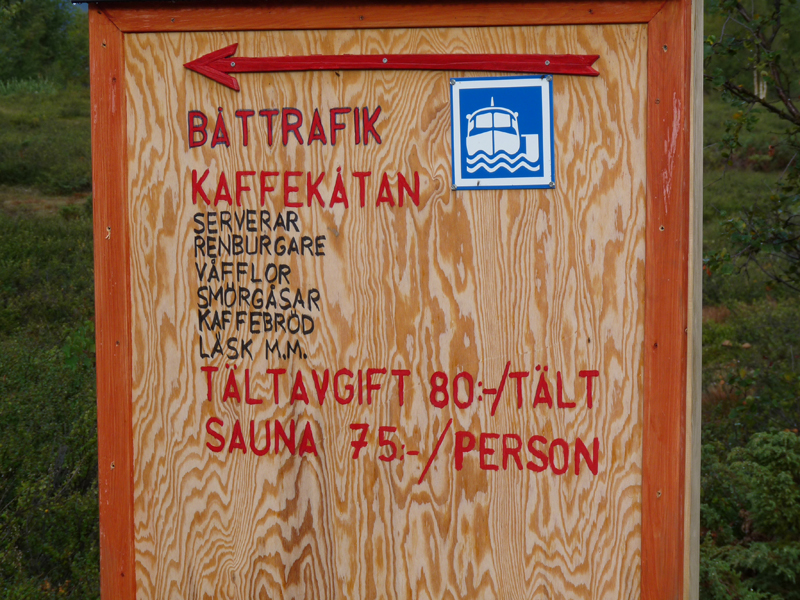 BÅTTRAFIK
KAFFEKÅTAN
SERVERAR
RENBURGARE
VÅFFLOR
SMÖRGÅSAR
KAFFEBRÖD
LÄSK M.M.
TÄLTAVGIFT 80:-/TÄLT
SAUNA 75:-/PERSON